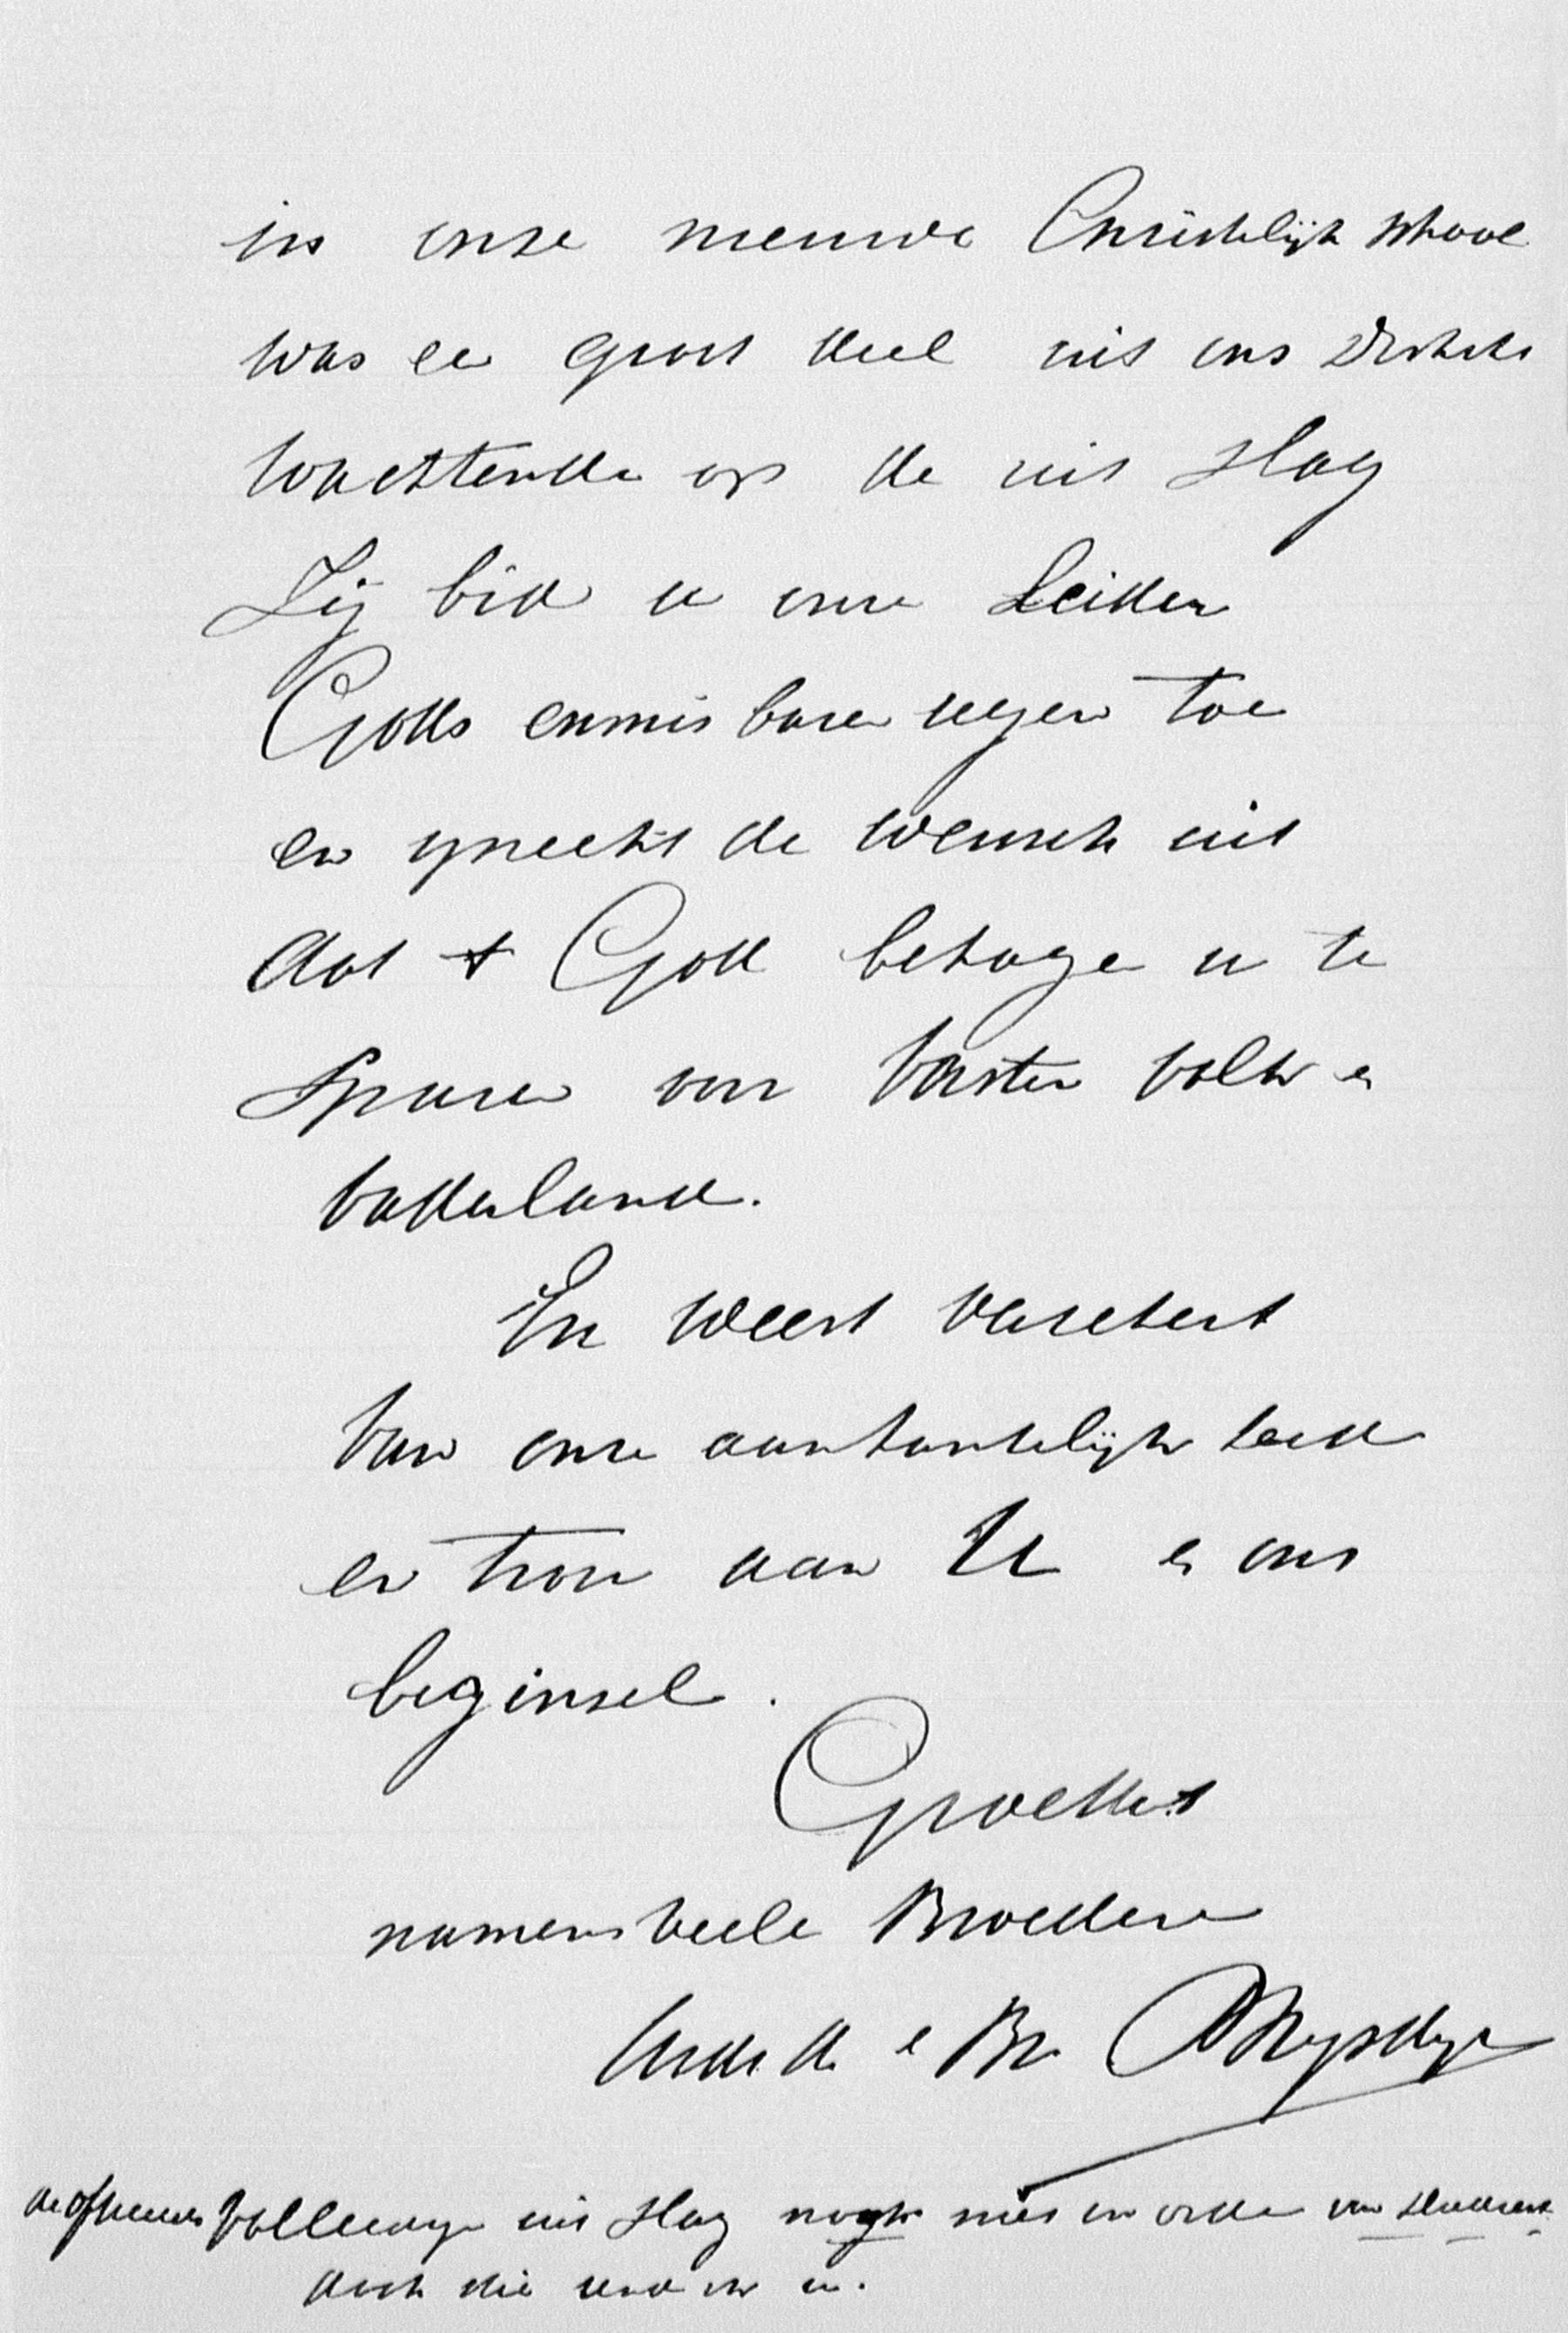 in onze nieuwe Christelijk school
was een groot deel uit ons District
wachtende op de uit slag
Zij bid u onze Leider
Gods onmis bare zegen toe
en spreekt de wensch uit
dat God behage u te
Sparen voor Vorstin volk en
vaderland.
En weest verzekert
van onze aanhankelijkheid
en trou aan U en ons
beginsel.
Groettet
namens veele Broeders
Br
volledige uit slag nogh niet in orde van
doch die zend ik u.